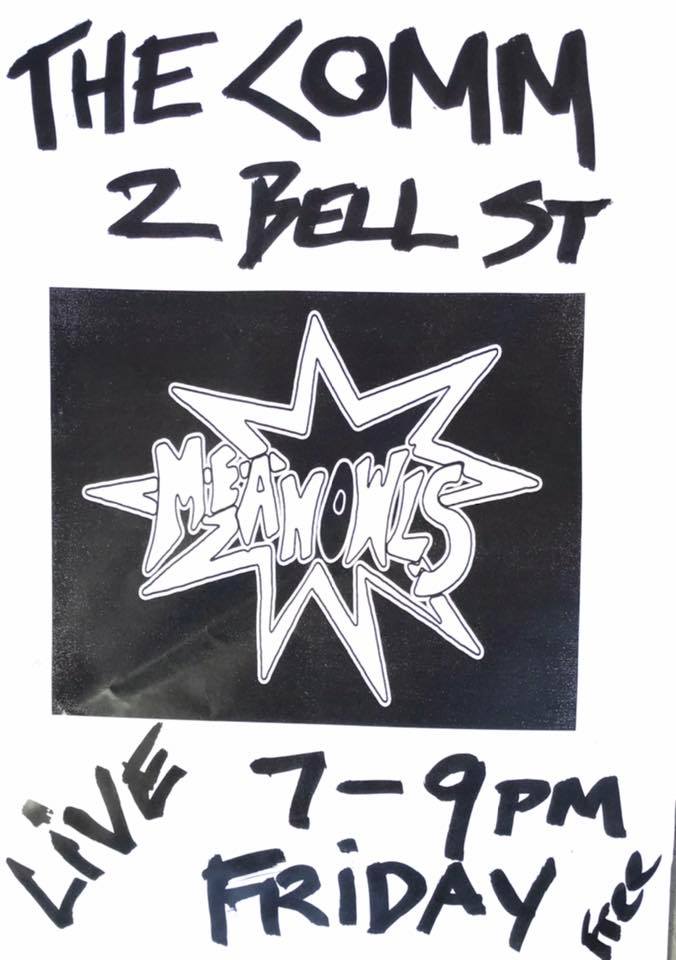 THE COMM
2 BELL ST
MEANOWLS
LiVE
7-9PM
FRiDAY
FREE